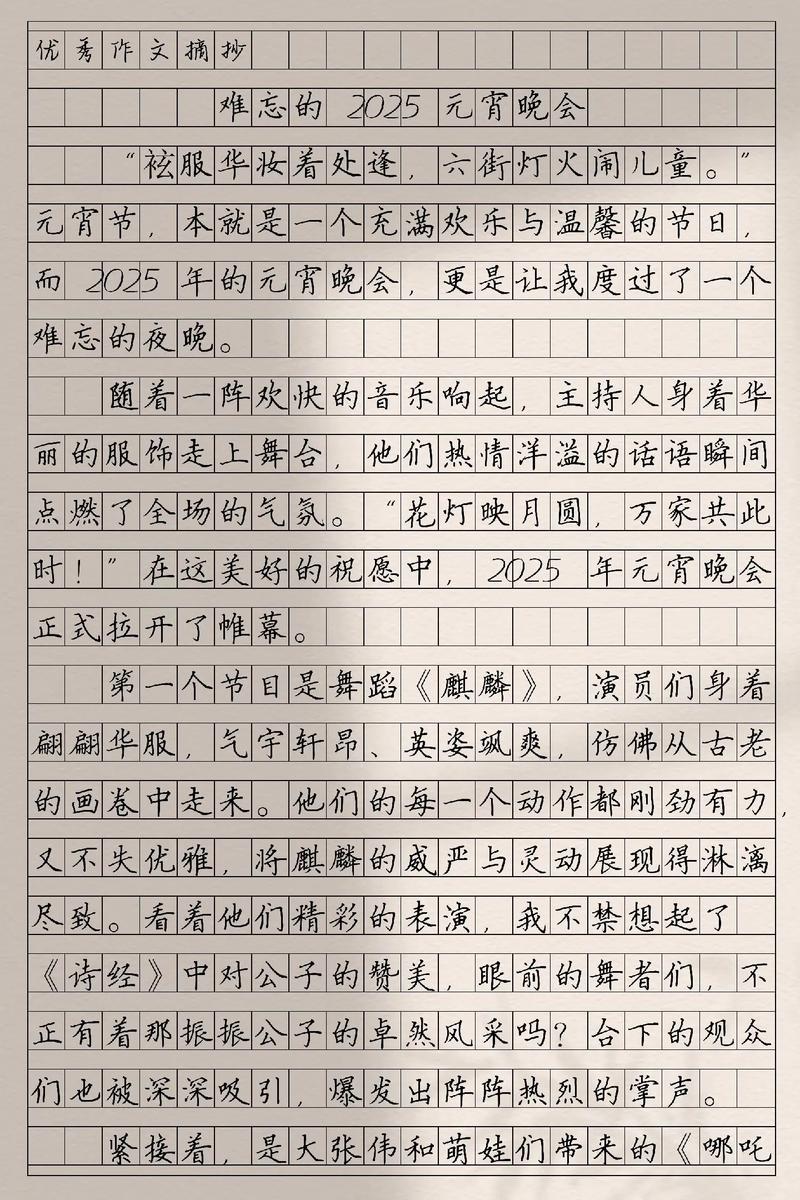 优秀作文摘抄
难忘的 2025 元宵晚会
“袨服华妆着处逢，六街灯火闹儿童。”
元宵节，本就是一个充满欢乐与温馨的节日，
而 2025 年的元宵晚会，更是让我度过了一个
难忘的夜晚。
随着一阵欢快的音乐响起，主持人身着华
丽的服饰走上舞台，他们热情洋溢的话语瞬间
点燃了全场的气氛。“花灯映月圆，万家共此
时！”在这美好的祝愿中，2025 年元宵晚会
正式拉开了帷幕。
第一个节目是舞蹈《麒麟》，演员们身着
翩翩华服，气宇轩昂、英姿飒爽，仿佛从古老
的画卷中走来。他们的每一个动作都刚劲有力，
又不失优雅，将麒麟的威严与灵动展现得淋漓
尽致。看着他们精彩的表演，我不禁想起了
《诗经》中对公子的赞美，眼前的舞者们，不
正有着那振振公子的卓然风采吗？台下的观众
们也被深深吸引，爆发出阵阵热烈的掌声。
紧接着，是大张伟和萌娃们带来的《哪吒